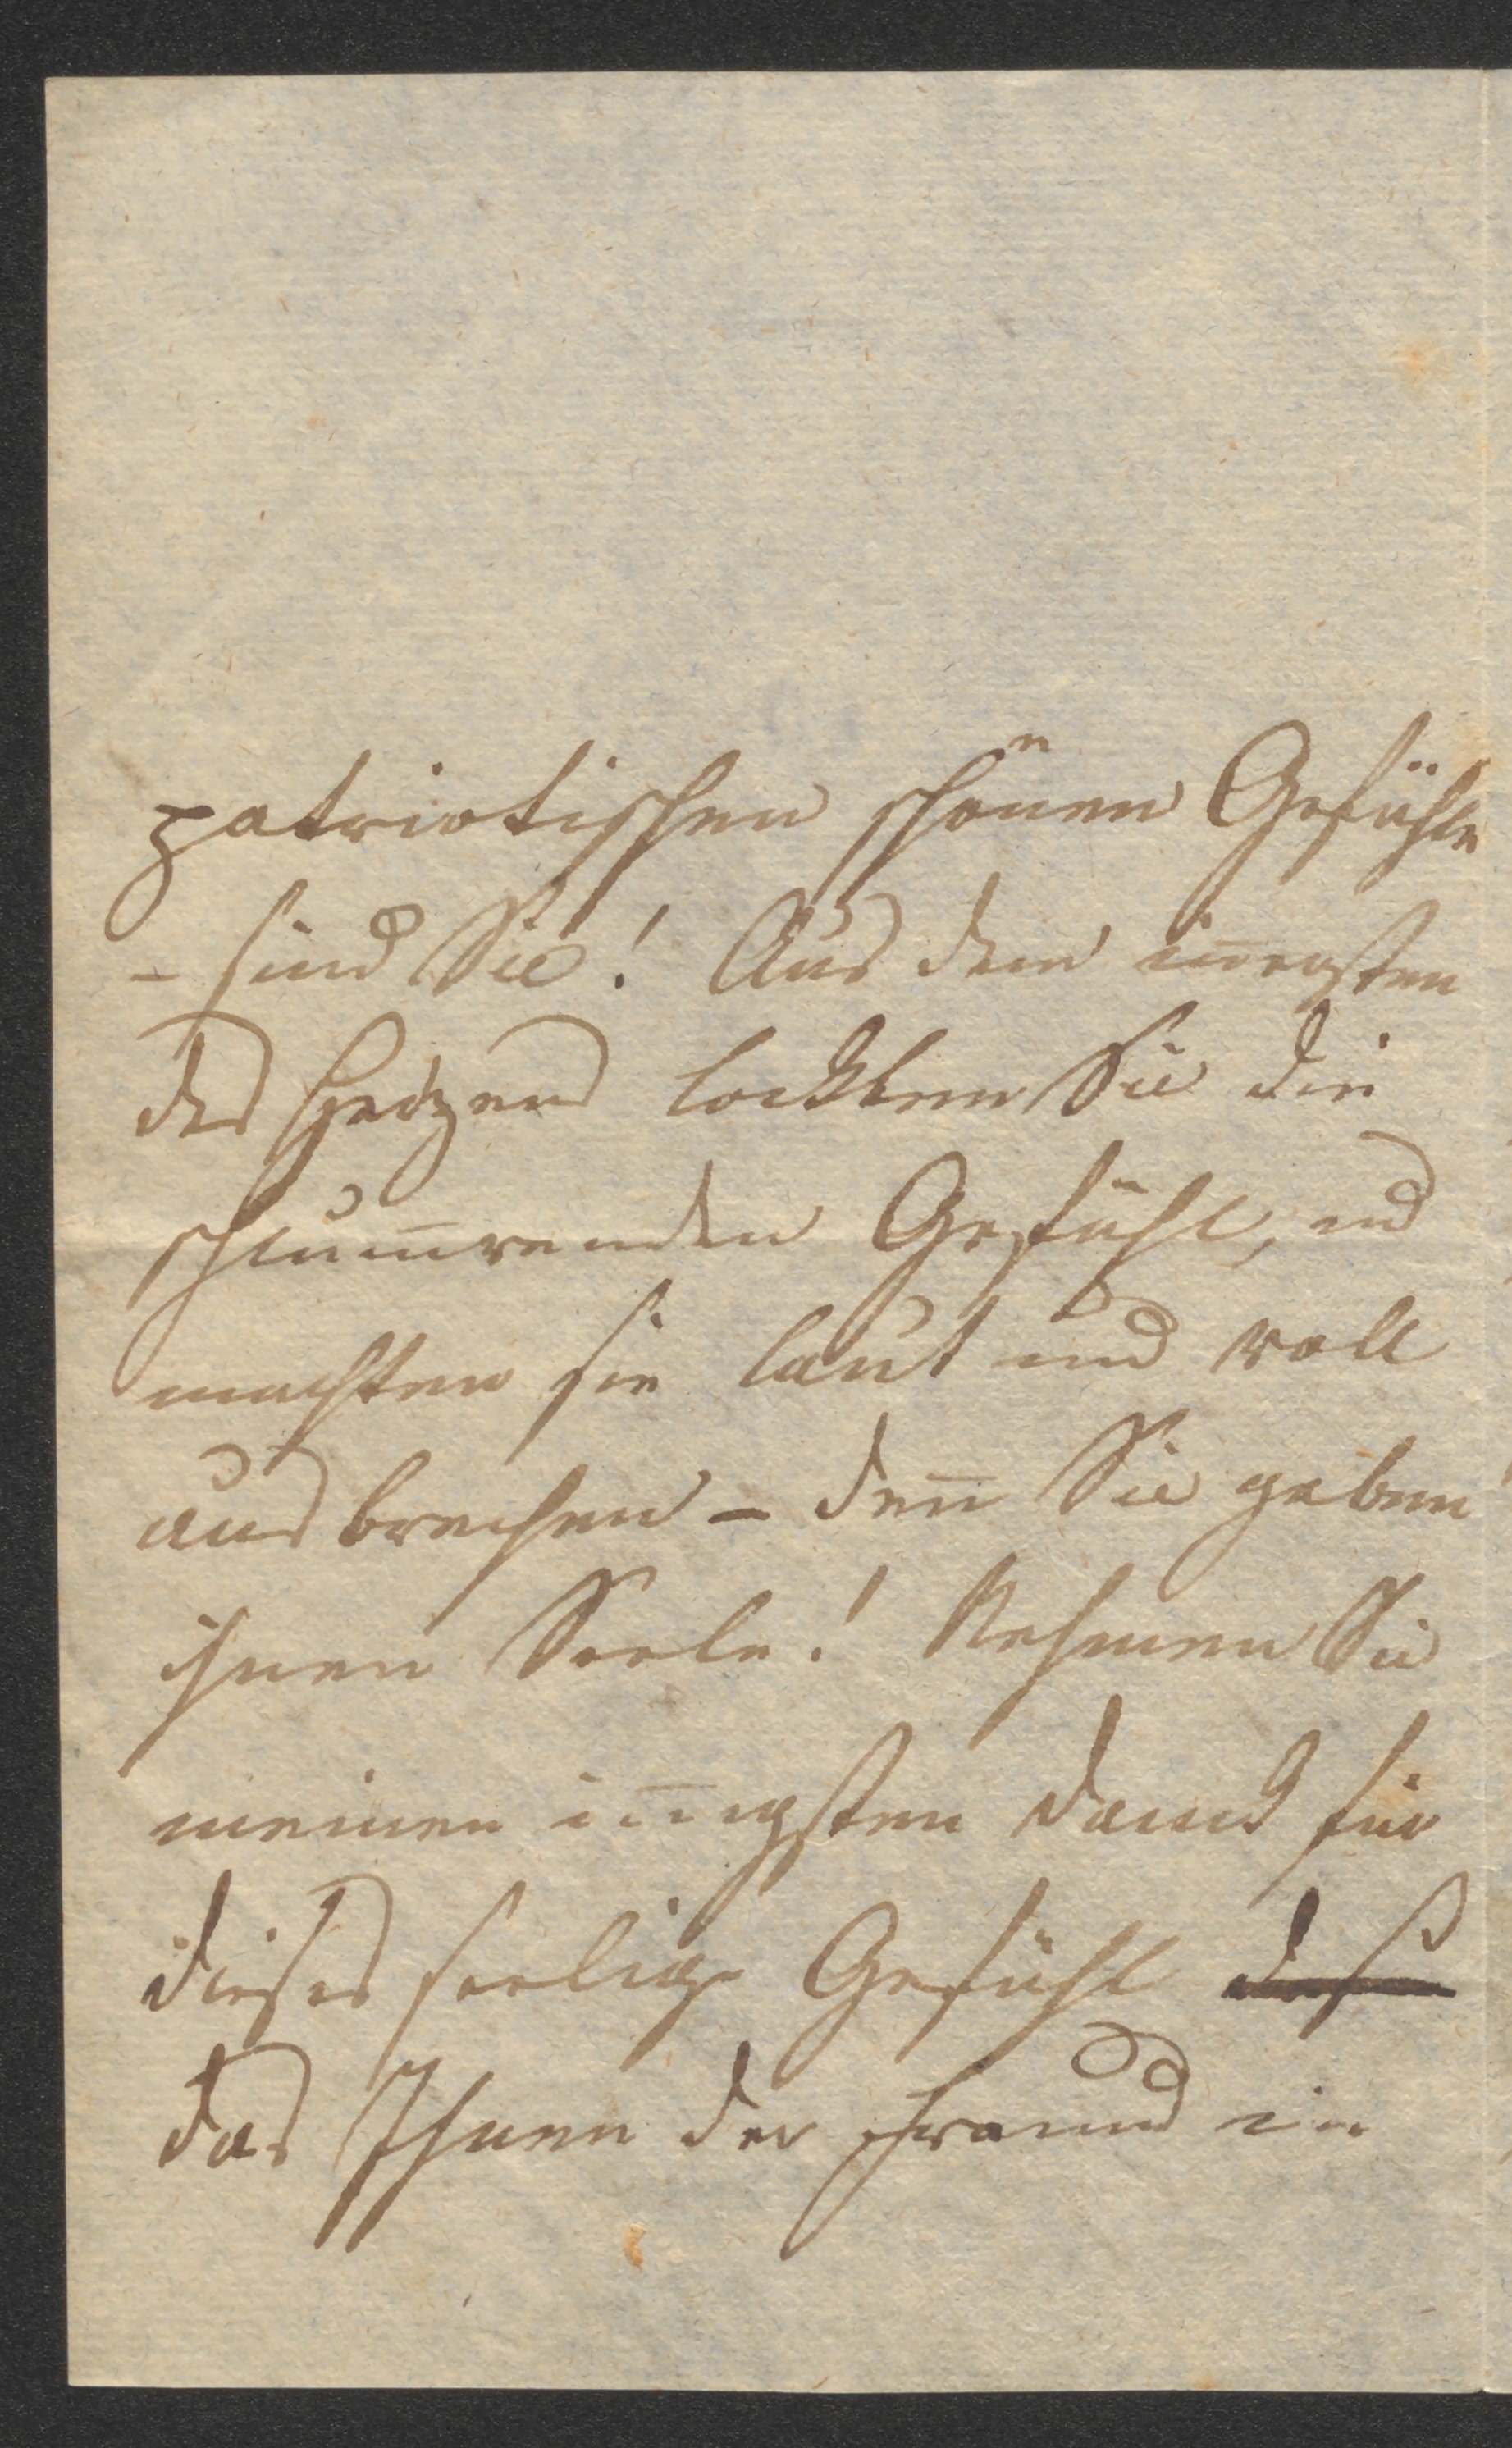 patriotischen schönen Gefühle
– sind Sie! Aus dem in̅ersten
des Herzens lockten Sie die
schlum̅renden Gefühle, und
machten sie laut und voll
ausbrechen – den̅ Sie geben
ihnen Seele! Nehmen Sie
meinen in̅igsten Danck für
dieses seelige Gefühl
das Ihnen der Freund in